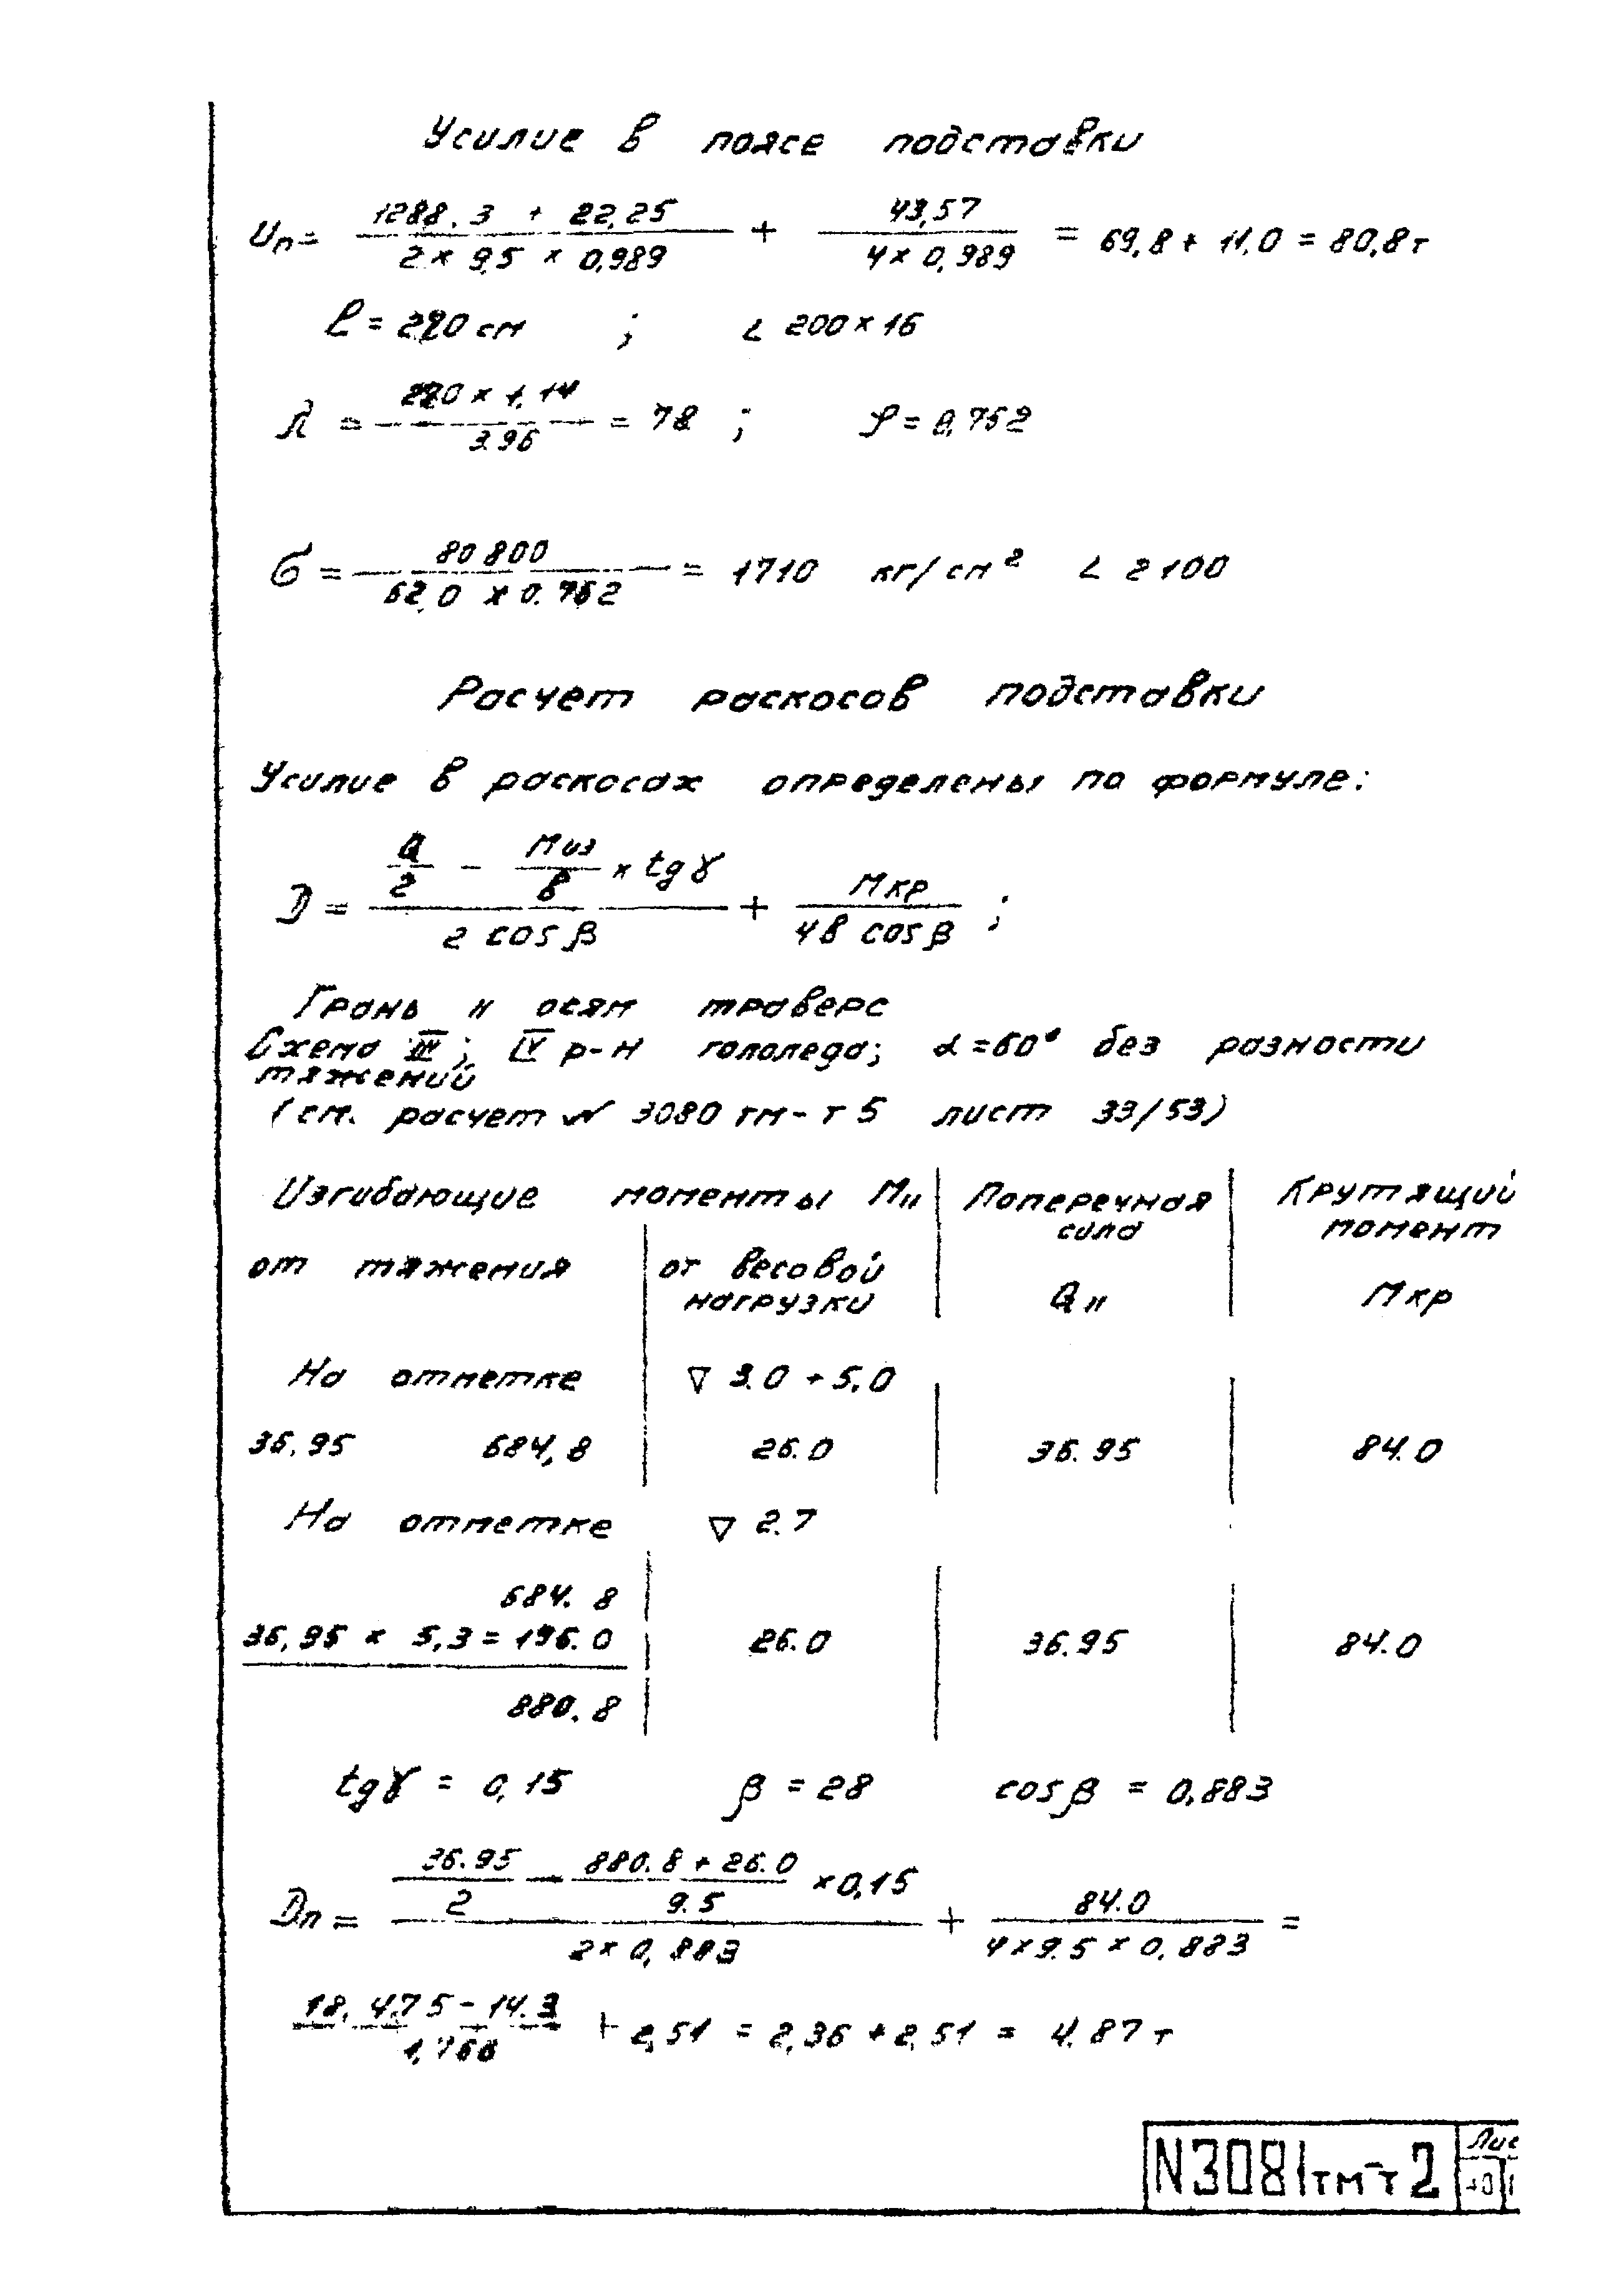 Усилие в поясе подставки
Uп = (1288.3 + 22,25) / (2 × 9,5 × 0,989) + 43,57 / (4 × 0,989) = 69,8 + 11,0 = 80,8 т
ℓ = 220 см ; L 200 × 16
λ = (220 × 1,14) / 3.96 = 78 ; φ = 0,752
σ = 80800 / (62,0 × 0.762) = 1710 кг/см² < 2100
Расчет раскосов подставки
Усилие в раскосах определены по формуле:
D = (Q/2 − Mиз/в × tgγ) / (2 cosβ) + Mкр / (4в cosβ) ;
Грань II осям траверс
Схема III; IV р-н гололеда; α = 60° без разности
тяжений
(см. расчет N 3080 тм-т5 лист 33/53)
Изгибающие моменты MII | Поперечная | Крутящий
сила | момент
от тяжения | от весовой
нагрузки | QII | Mкр
На отметке ▽ 3.0 ÷ 5,0
36,95 684,8 | 26.0 | 36.95 | 84.0
На отметке ▽ 2.7
684.8
36,95 × 5,3 = 196.0 | 26.0 | 36.95 | 84.0
880.8
tgγ = 0,15 β = 28 cosβ = 0,883
Dп = (36.95/2 − (880.8 + 26.0)/9.5 × 0,15) / (2 × 0,883) + 84.0 / (4 × 9.5 × 0,883) =
(18,475 − 14.3) / 1,766 + 2,51 = 2,36 + 2,51 = 4.87 т
N3081тм-т2